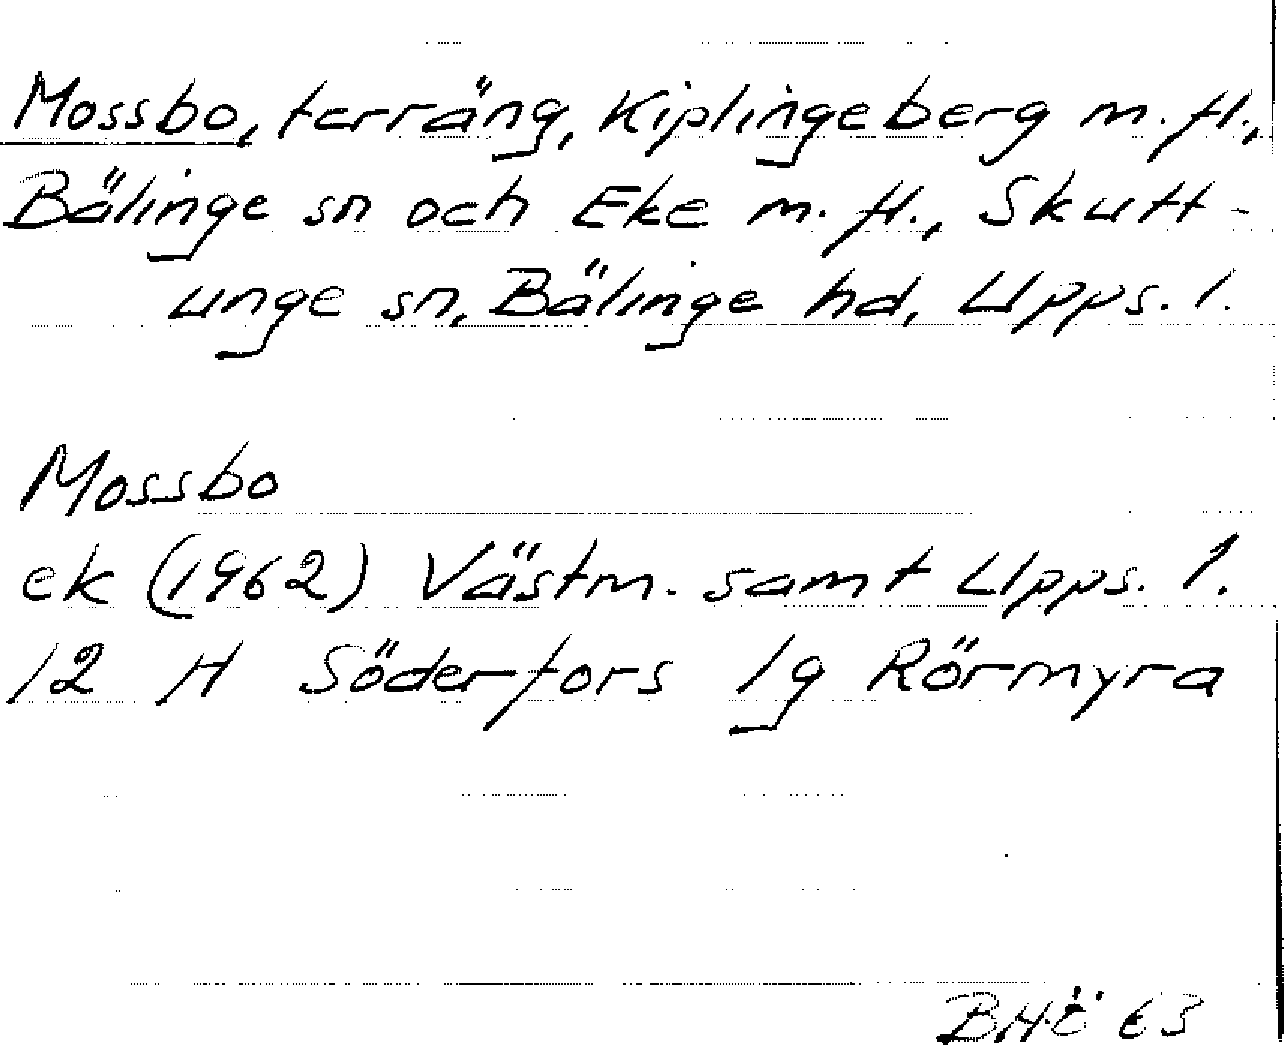 Mossbo, terräng, Kiplingeberg m.fl.,
Bälinge sn och Eke m.fl., Skutt-
unge sn, Bälinge hd, Upps. l.
Mossbo
ek (1962) Västm. samt Upps. l.
12 H Söderfors 1g Rörmyra
BHÖ 63